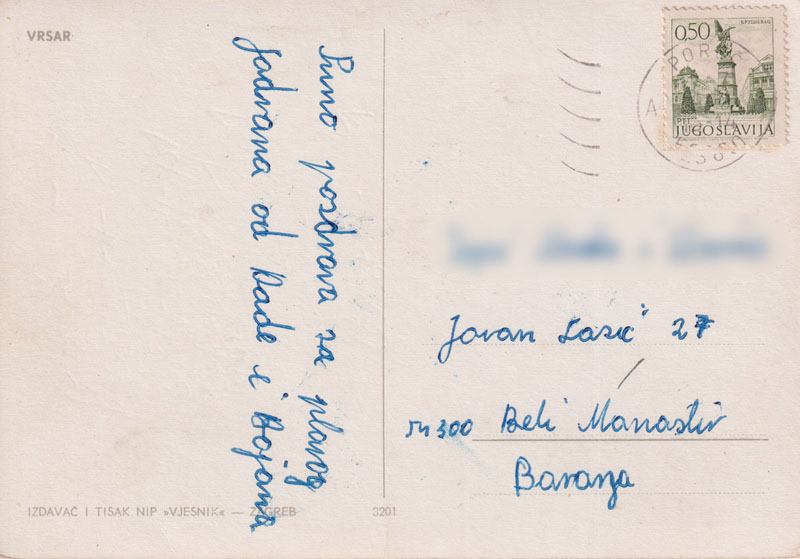 VRSAR
Puno pozdrava sa plavog
Jadrana od Dade i Bojana
IZDAVAČ I TISAK NIP »VJESNIK« — ZAGREB
3201
КРУШЕВАЦ
0,50
PTT
JUGOSLAVIJA
Jovan Lazić 27
54300 Beli Manastir
Baranja